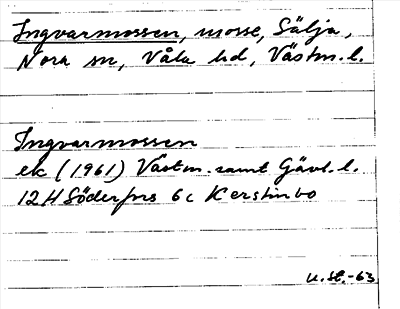 Ingvarmossen, mosse, Sälja,
Nora sn, Våla hd, Västm. l.
Ingvarmossen
ek (1961) Västm. samt Gävl. l.
12 H Söderfors 6 c Kerstinbo
U. St. -63